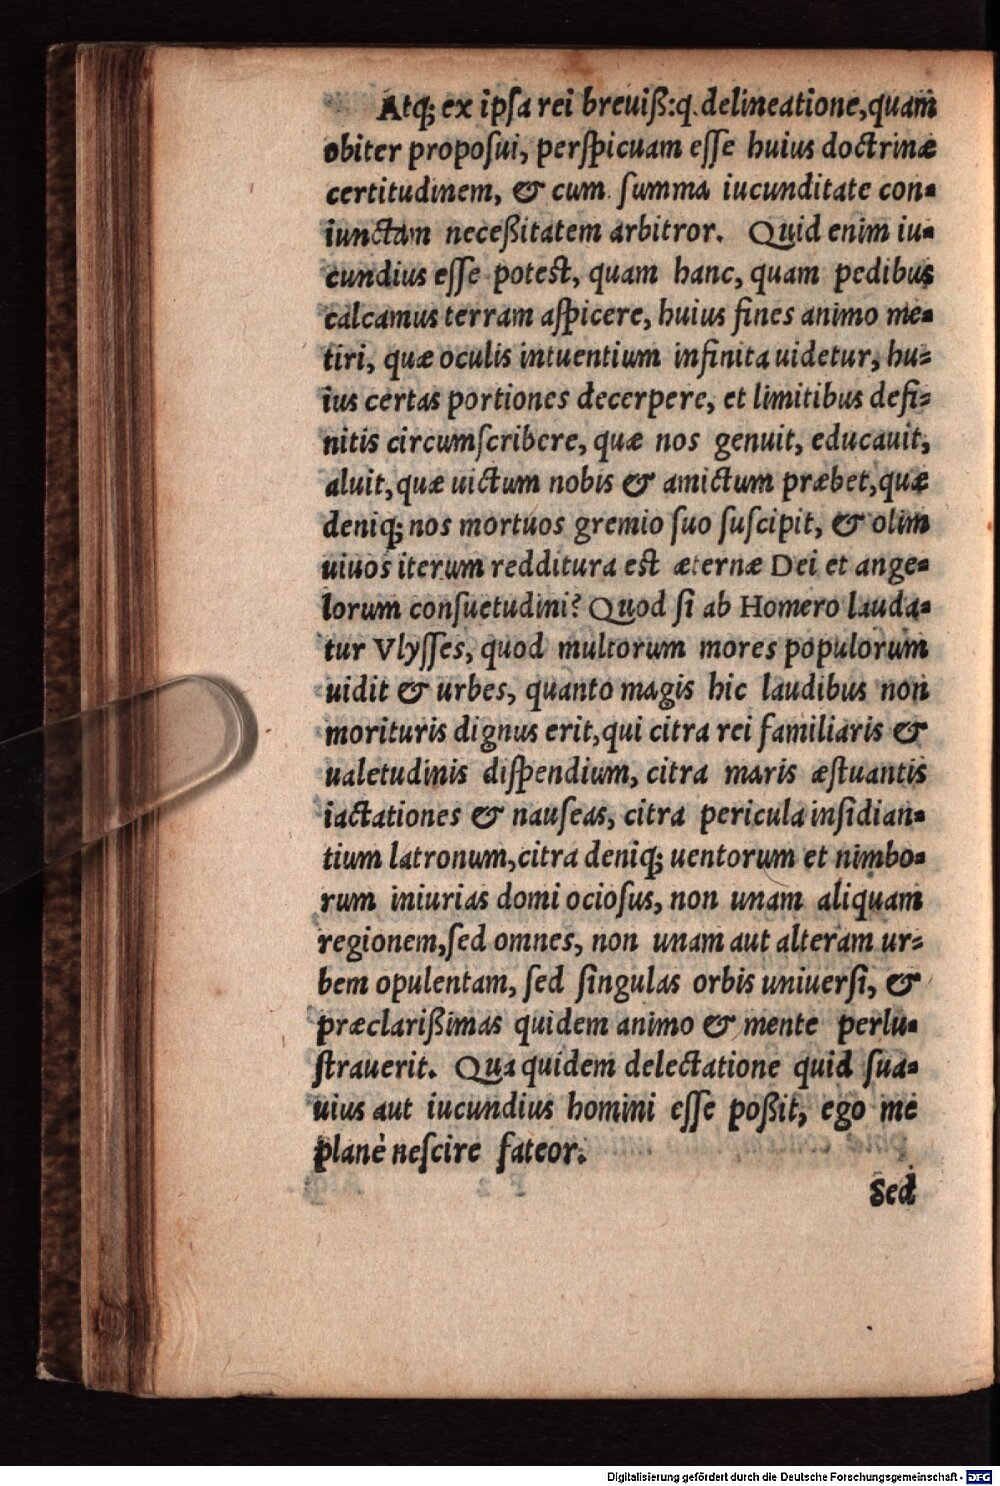 Atq; ex ipſa rei breuiß:q. delineatione, quam
obiter propoſui, perſpicuam eſſe huius doctrinæ
certitudinem, & cum ſumma iucunditate con=
iunctam neceßitatem arbitror. Quid enim iu=
cundius eſſe potest, quam hanc, quam pedibus
calcamus terram aſpicere, huius fines animo me=
tiri, quæ oculis intuentium infinita uidetur, hu=
ius certas portiones decerpere, et limitibus defi=
nitis circumſcribere, quæ nos genuit, educauit,
aluit, quæ uictum nobis & amictum præbet, quæ
deniq; nos mortuos gremio ſuo ſuſcipit, & olim
uiuos iterum redditura est æternæ Dei et ange=
lorum conſuetudini? Quod ſi ab Homero lauda=
tur Vlyſſes, quod multorum mores populorum
uidit & urbes, quanto magis hic laudibus non
morituris dignus erit, qui citra rei familiaris &
ualetudinis diſpendium, citra maris æſtuantis
iactationes & nauſeas, citra pericula inſidian=
tium latronum, citra deniq; uentorum et nimbo=
rum iniurias domi ocioſus, non unam aliquam
regionem, ſed omnes, non unam aut alteram ur=
bem opulentam, ſed ſingulas orbis uniuerſi, &
præclarißimas quidem animo & mente perlu=
ſtrauerit. Qua quidem delectatione quid ſua=
uius aut iucundius homini eſſe poßit, ego me
planè neſcire fateor.
Sed
Digitalisierung gefördert durch die Deutsche Forschungsgemeinschaft - DFG